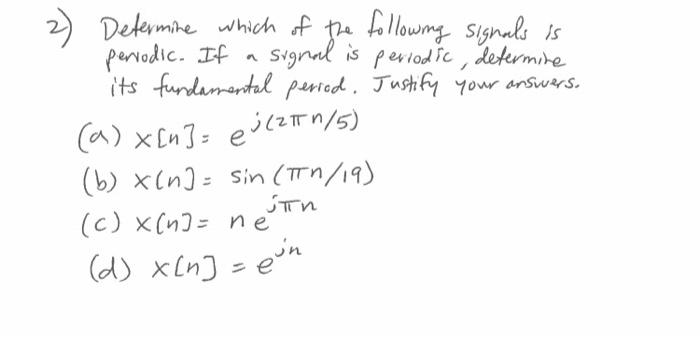 2) Determine which of the following signals is
periodic. If a signal is periodic, determine
its fundamental period. Justify your answers.
(a) x[n] = e^{j(2πn/5)}
(b) x[n] = sin(πn/19)
(c) x[n] = ne^{jπn}
(d) x[n] = e^{jn}